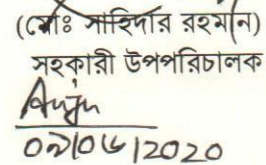 (মোঃ সাহিদার রহমান)
সহকারী উপপরিচালক
০৯/০৬/2020